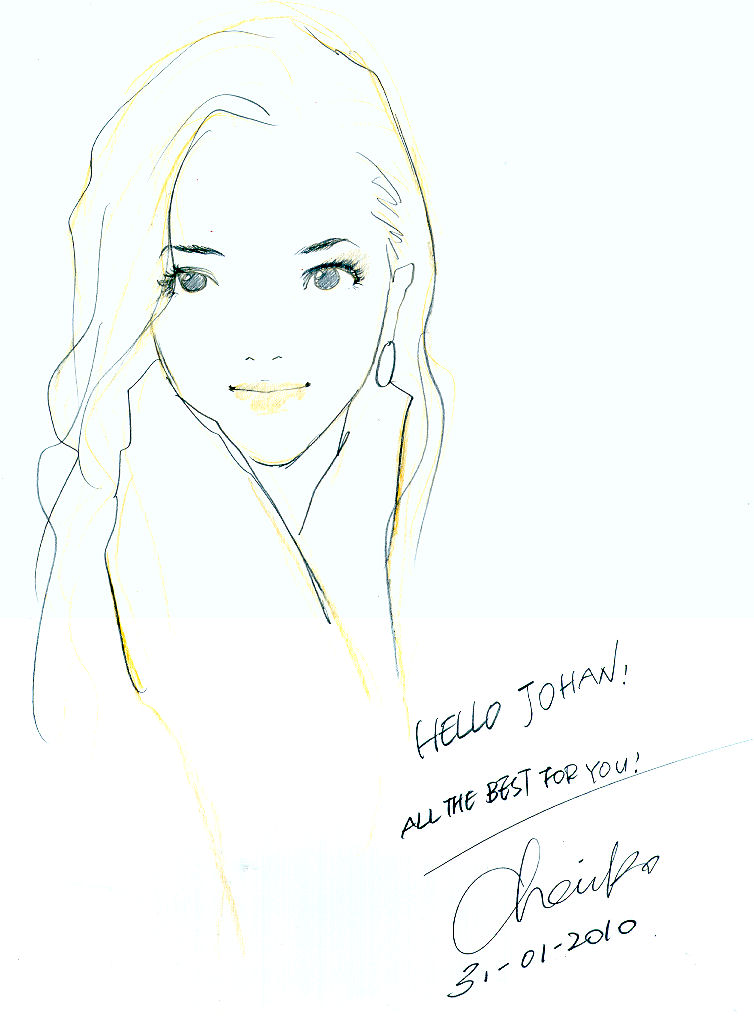 HELLO JOHAN!
ALL THE BEST FOR YOU!
31-01-2010